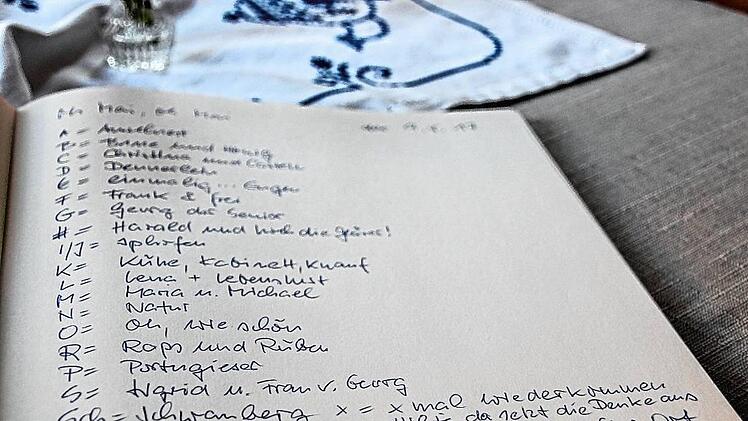 Oh Mai, oh Mai
B = und Honig
C = Christina und
D =
E = einmalig ...
F = Frank & frei
G = Georg der Senior
H = Harald und hoch die Gläser!
I/J = Iphofen
K = Kühe, Kabinett, Knauf
L = Lena + Lebenslust
M = Maria u. Michael
N = Natur
O = Oh, wie schön
R = Raps und Rüben
P = Portugieser
S = Ingrid u. Frau v. Georg
Sch = Schwanberg x = x mal wiederkommen
da jetzt die Denke aus